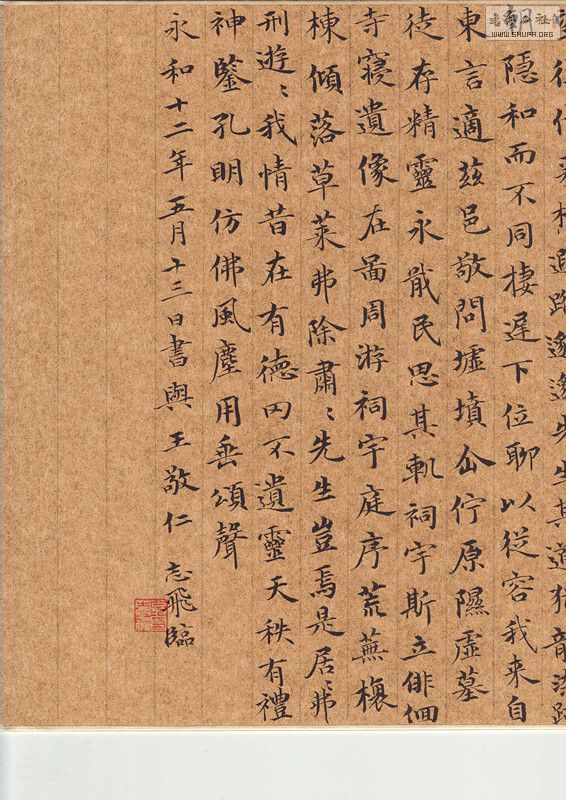 先生其道猶龍
朝隱和而不同棲遲下位聊以從容我來自
東言適茲邑敬問墟墳企佇原隰虛墓
徒存精靈永戢民思其軌祠宇斯立徘徊
寺寢遺像在啚周游祠宇庭序荒蕪榱
棟傾落草萊弗除肅〻先生豈焉是居〻弗
刑遊〻我情昔在有德罔不遺靈天秩有禮
神鑒孔明仿佛風塵用垂頌聲
永和十二年五月十三日書與王敬仁 志飛臨
WWW.SHUFA.ORG